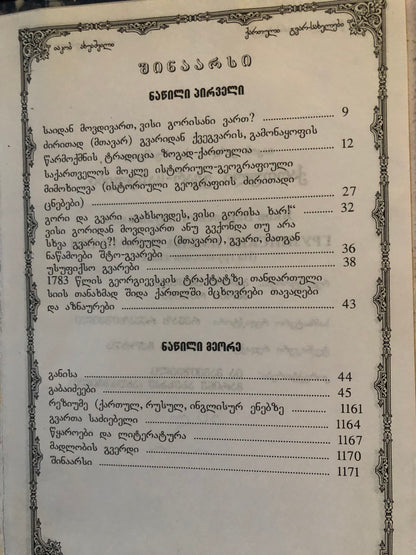 იაკობ ახუაშვილი
ქართული გვარ-სახელები
შინაარსი
ნაწილი პირველი
საიდან მოვდივართ, ვისი გორისანი ვართ? 9
ძირითად (მთავარ) გვარიდან ქვეგვარის, განაყოფის
წარმოქმნის ტრადიცია ზოგად-ქართულია 12
საქართველოს მოკლე ისტორიულ-გეოგრაფიული
მიმოხილვა (ისტორიული გეოგრაფიის ძირითადი
ცნებები) 27
გორი და გვარი „გახსოვდეს, ვისი გორისა ხარ!“ 32
ვისი გორიდან მოვდივართ ანუ გვქონდა თუ არა
სხვა გვარიც?! ძირეული (მთავარი), გვარი, მათგან
ნაწამოები შტო-გვარები 36
უსუფიქსო გვარები 38
1783 წლის გეორგიევსკის ტრაქტატზე თანდართული
სიის თანახმად შიდა ქართლში მცხოვრები თავადები
და აზნაურები 43
ნაწილი მეორე
განისა 44
გაბაიძეები 45
რეზიუმე (ქართულ, რუსულ, ინგლისურ ენებზე 1161
გვართა საძიებელი 1164
წყაროები და ლიტერატურა 1167
მადლობის გვერდი 1170
შინაარსი 1171